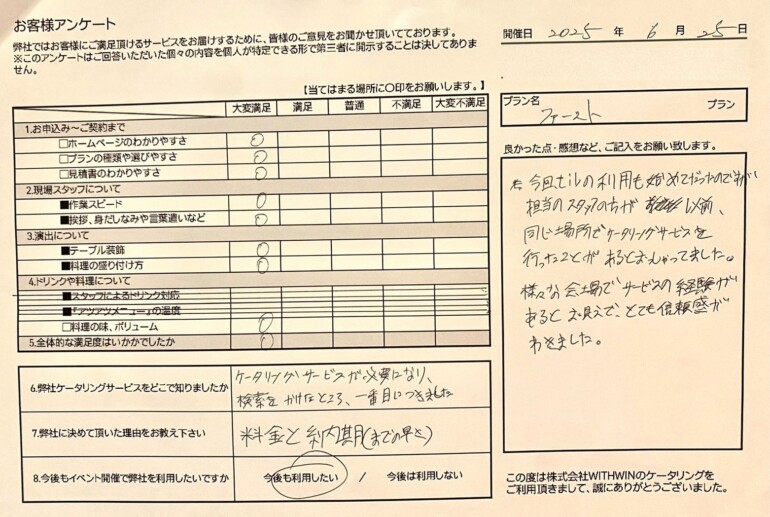 お客様アンケート
弊社ではお客様にご満足頂けるサービスをお届けするために、皆様のご意見をお聞かせ頂いてております。
※このアンケートはご回答いただいた個々の内容を個人が特定できる形で第三者に開示することは決してありま
せん。
【当てはまる場所に〇印をお願いします。】
大変満足 満足 普通 不満足 大変不満足
1.お申込み〜ご契約まで
□ホームページのわかりやすさ
□プランの種類や選びやすさ
□見積書のわかりやすさ
2.現場スタッフについて
■作業スピード
■挨拶、身だしなみや言葉遣いなど
3.演出について
■テーブル装飾
■料理の盛り付け方
4.ドリンクや料理について
■スタッフによるドリンク対応
■『アツアツメニュー』の温度
□料理の味、ボリューム
5.全体的な満足度はいかがでしたか
6.弊社ケータリングサービスをどこで知りましたか
ケータリングサービスが必要になり、
検索をかけたところ、一番目につきました
7.弊社に決めて頂いた理由をお教え下さい
料金と納期(までの早さ)
8.今後もイベント開催で弊社を利用したいですか
今後も利用したい / 今後は利用しない
開催日 2025 年 6 月 25 日
プラン名 ファースト プラン
良かった点・感想など、ご記入をお願い致します。
今回、ビルの利用も始めてだったのですが
担当のスタッフの方が 以前、
同じ場所でケータリングサービスを
行ったことがあるとおっしゃってました。
様々な会場でサービスの経験が
あるとお見えで、とても信頼感が
わきました。
この度は株式会社WITHWINのケータリングを
ご利用頂きまして、誠にありがとうございました。